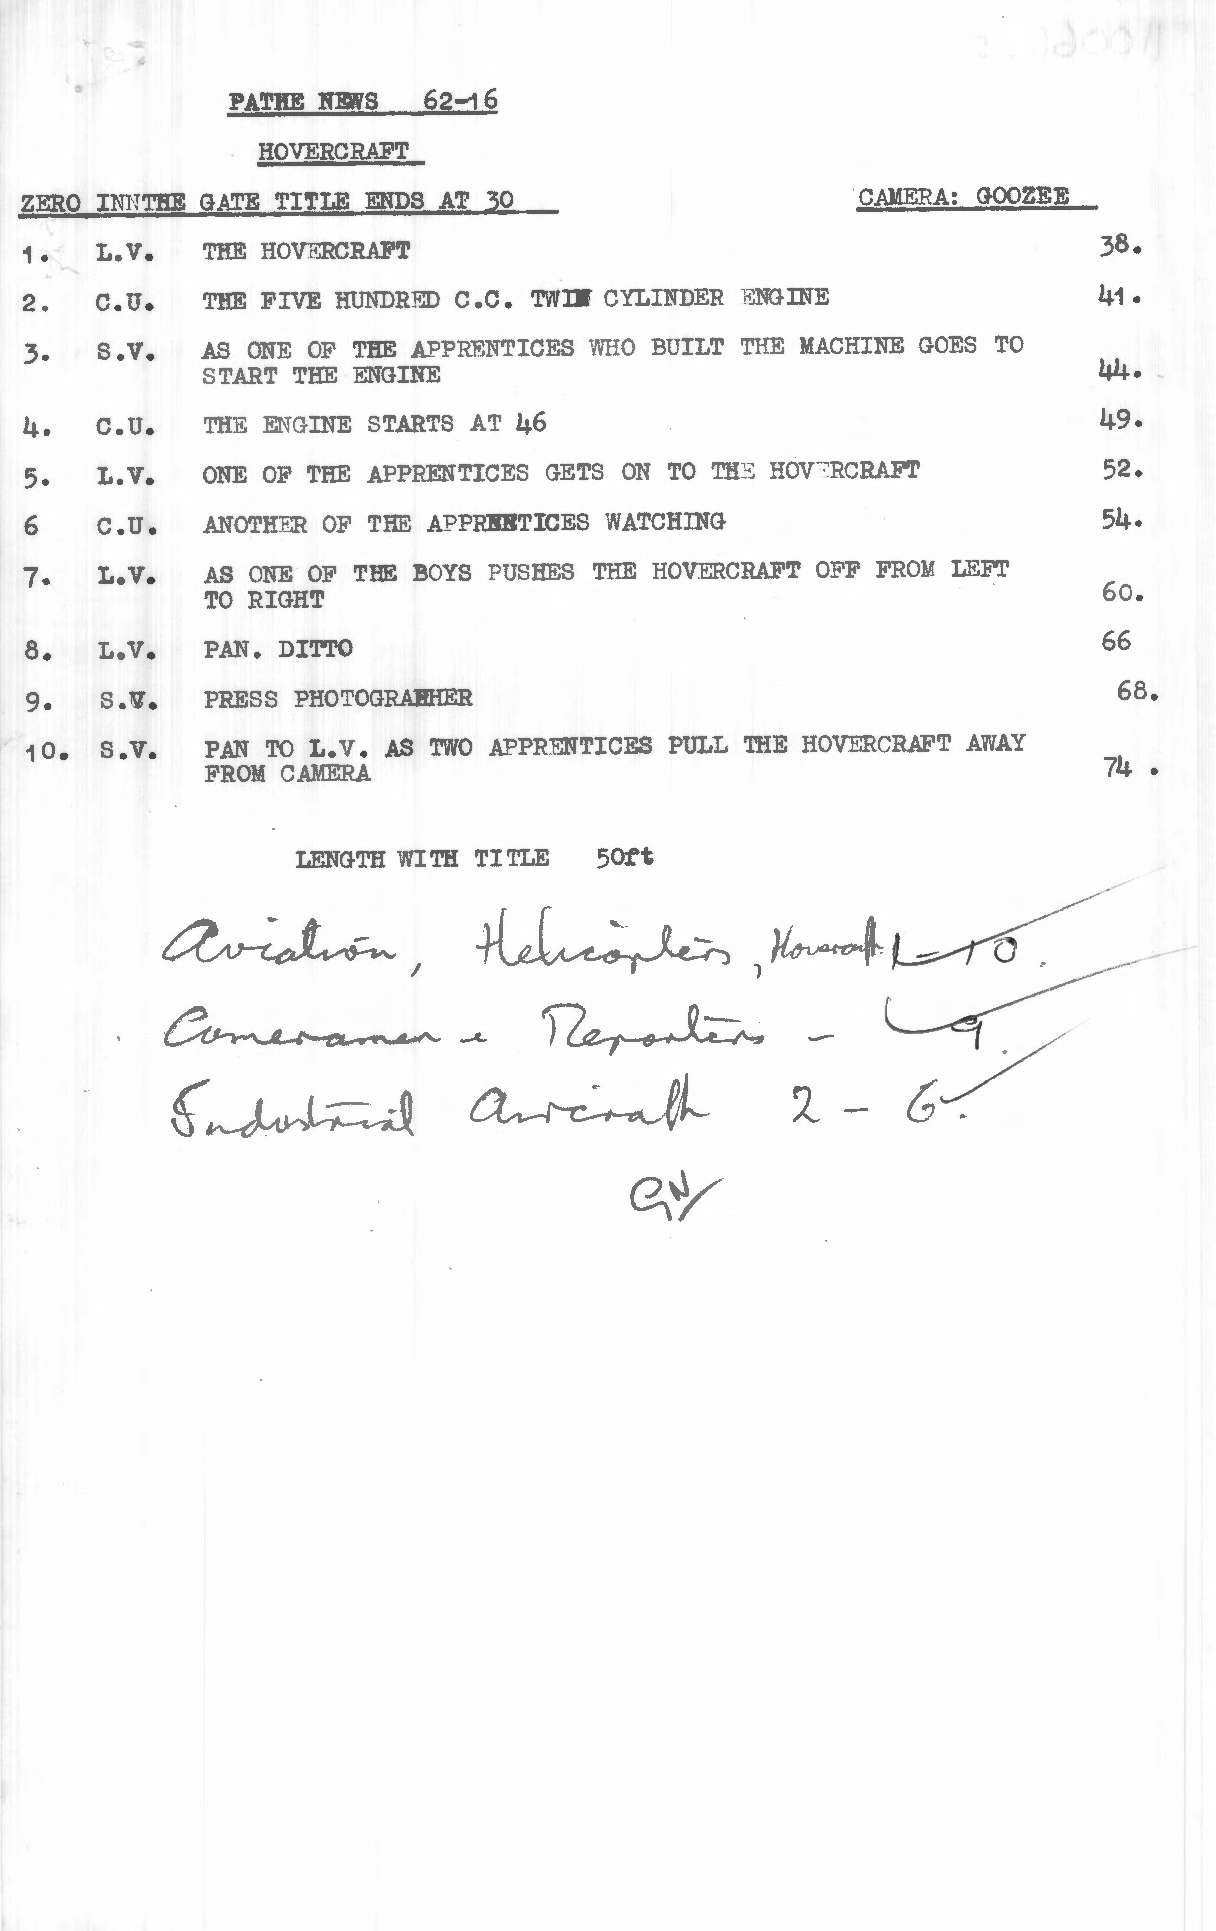 PATHE NEWS 62-16
HOVERCRAFT
ZERO INNTHE GATE TITLE ENDS AT 30 CAMERA: GOOZEE
1. L.V. THE HOVERCRAFT 38.
2. C.U. THE FIVE HUNDRED C.C. TWIN CYLINDER ENGINE 41.
3. S.V. AS ONE OF THE APPRENTICES WHO BUILT THE MACHINE GOES TO
START THE ENGINE 44.
4. C.U. THE ENGINE STARTS AT 46 49.
5. L.V. ONE OF THE APPRENTICES GETS ON TO THE HOVERCRAFT 52.
6 C.U. ANOTHER OF THE APPRENTICES WATCHING 54.
7. L.V. AS ONE OF THE BOYS PUSHES THE HOVERCRAFT OFF FROM LEFT
TO RIGHT 60.
8. L.V. PAN. DITTO 66
9. S.V. PRESS PHOTOGRAHHER 68.
10. S.V. PAN TO L.V. AS TWO APPRENTICES PULL THE HOVERCRAFT AWAY
FROM CAMERA 74 .
LENGTH WITH TITLE 50ft
Aviation, Helicopters, Hovercraft 1-10.
Cameramen & Reporters - 9.
Industrial Aircraft 2 - 6.